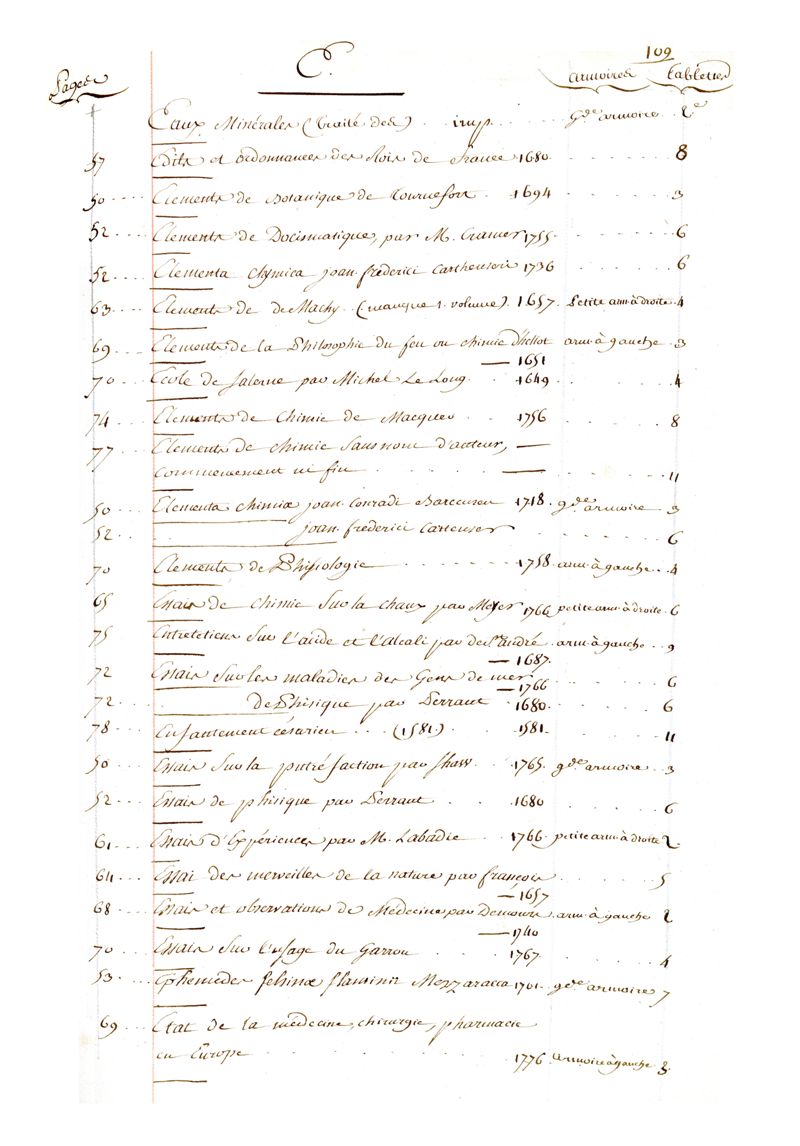 109
E.
Pages armoires tablettes
+ Eaux Minérales (traité des) . . imp. . . . . . gde armoire . 2e
57 Edits et ordonnances des Rois de france 1680. . . . . . . 8
50 . . . . Elements de Botanique de Tournefort . 1694 . . . . . . 3
52 . . . . Elements de Docimatique, par M. Cramer 1755 . . . . . . 6
52 . . . . Elementa chymica joan. frederici Cartheuseri 1736 . . . . . . 6
63 . . . . Elements de deMachy. (manque 1. volume). 1657. Petite arm. à droite . 4
69 . . . Elements de la Philosophie du feu ou chimie d'hellot arm. à gauche . 3
— 1651
70 . . . Ecole de Salerne par Michel Le Long. . 1649 . . . . . . 4
74 . . . Elements de Chimie de Macquer . . 1756 . . . . . . 8
77 . . . Elements de chimie sans nom d'auteur, —
commencement ni fin . . . . . . — . . . . . . 11
50 . . . Elementa chimiæ joan. Conradi Barccusen 1718 . gde armoire . 3
52 . . . joan. frederici Carteuser . . . . . . 6
70 Elements de Phisiologie — . . . 1758. arm. à gauche . . 4
65 Essais de chimie Sur la chaux par Meyer 1766 petite arm. à droite . 6
75 Entretetiens Sur l'acide et l'alcali par de St. andré . arm. à gauche . . 9
— 1687.
72 . . . Essais Sur les maladies des Gens de mer . . . . . . 6
— 1766
72 . . . . de Phisique par Perraut . 1680. . . . . . . 6
78 . . . Enfantement césarien . . . (1581.) . . 1581. . . . . . . 11
50 . . . Essais Sur la putréfaction par Shaw . . 1765. gde armoire . . 3
52 . . . Essais de phisique par Perraut . . . 1680 . . . . . . 6
61 . . . Essais d'Expériences par M. Labadie . . 1766. petite arm. à droite 2.
64 . . . Essai des merveilles de la nature par françois . . . . . . . 5
— 1657
68 . . . Essais et observations de Médecine par Demours . arm. à gauche 2
— 1740
70 . . . Essais Sur l'usage du Garrou . . . 1767. . . . . . . 4
53 . . . Ephemedes felsinæ flaminii Mezzaracca 1701. gde armoire . 7
69 . . . Etat de la médecine, chirurgie, pharmacie
en Europe . . . . . . 1776 armoire à gauche 3.